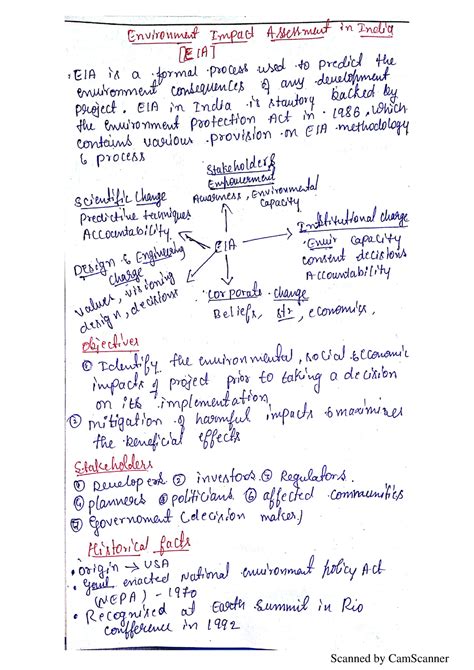 Environment Impact Assessment in India
[EIA]
• EIA is a formal process used to predict the
environment consequences of any development
project. EIA in India is stautory backed by
the environment Protection Act in 1986, which
contains various provision on EIA methodology
& process
Stakeholders
Empowerment
Awarness, Environmental
Capacity
Scientific Change
Predictive techniques
Accountability
Institutional change
Envir capacity
consent decisions
Accountability
EIA
Design & Engineering
Change
values, visioning
design, decisions
Corporate change
Beliefs, str, economics.
Objectives
① Identify the environmental, social & economic
impacts of project prior to taking a decision
on its implementation
② mitigation of harmful impacts & maximizes
the beneficial effects
Stakeholders
① Developers ② investors ③ Regulators.
④ planners ⑤ politicians ⑥ affected communities
⑦ Government (decision maker)
Historical facts
• origin → USA
• Govt enacted National environment policy Act
(NEPA) - 1970
• Recognised at Earth Summit in Rio
conference in 1992
Scanned by CamScanner